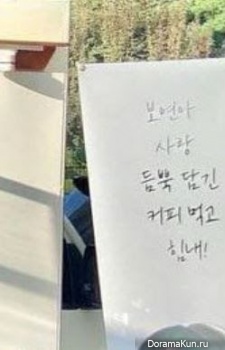 보연아
사랑
듬뿍 담긴
커피 먹고
힘내!
DoramaKun.ru